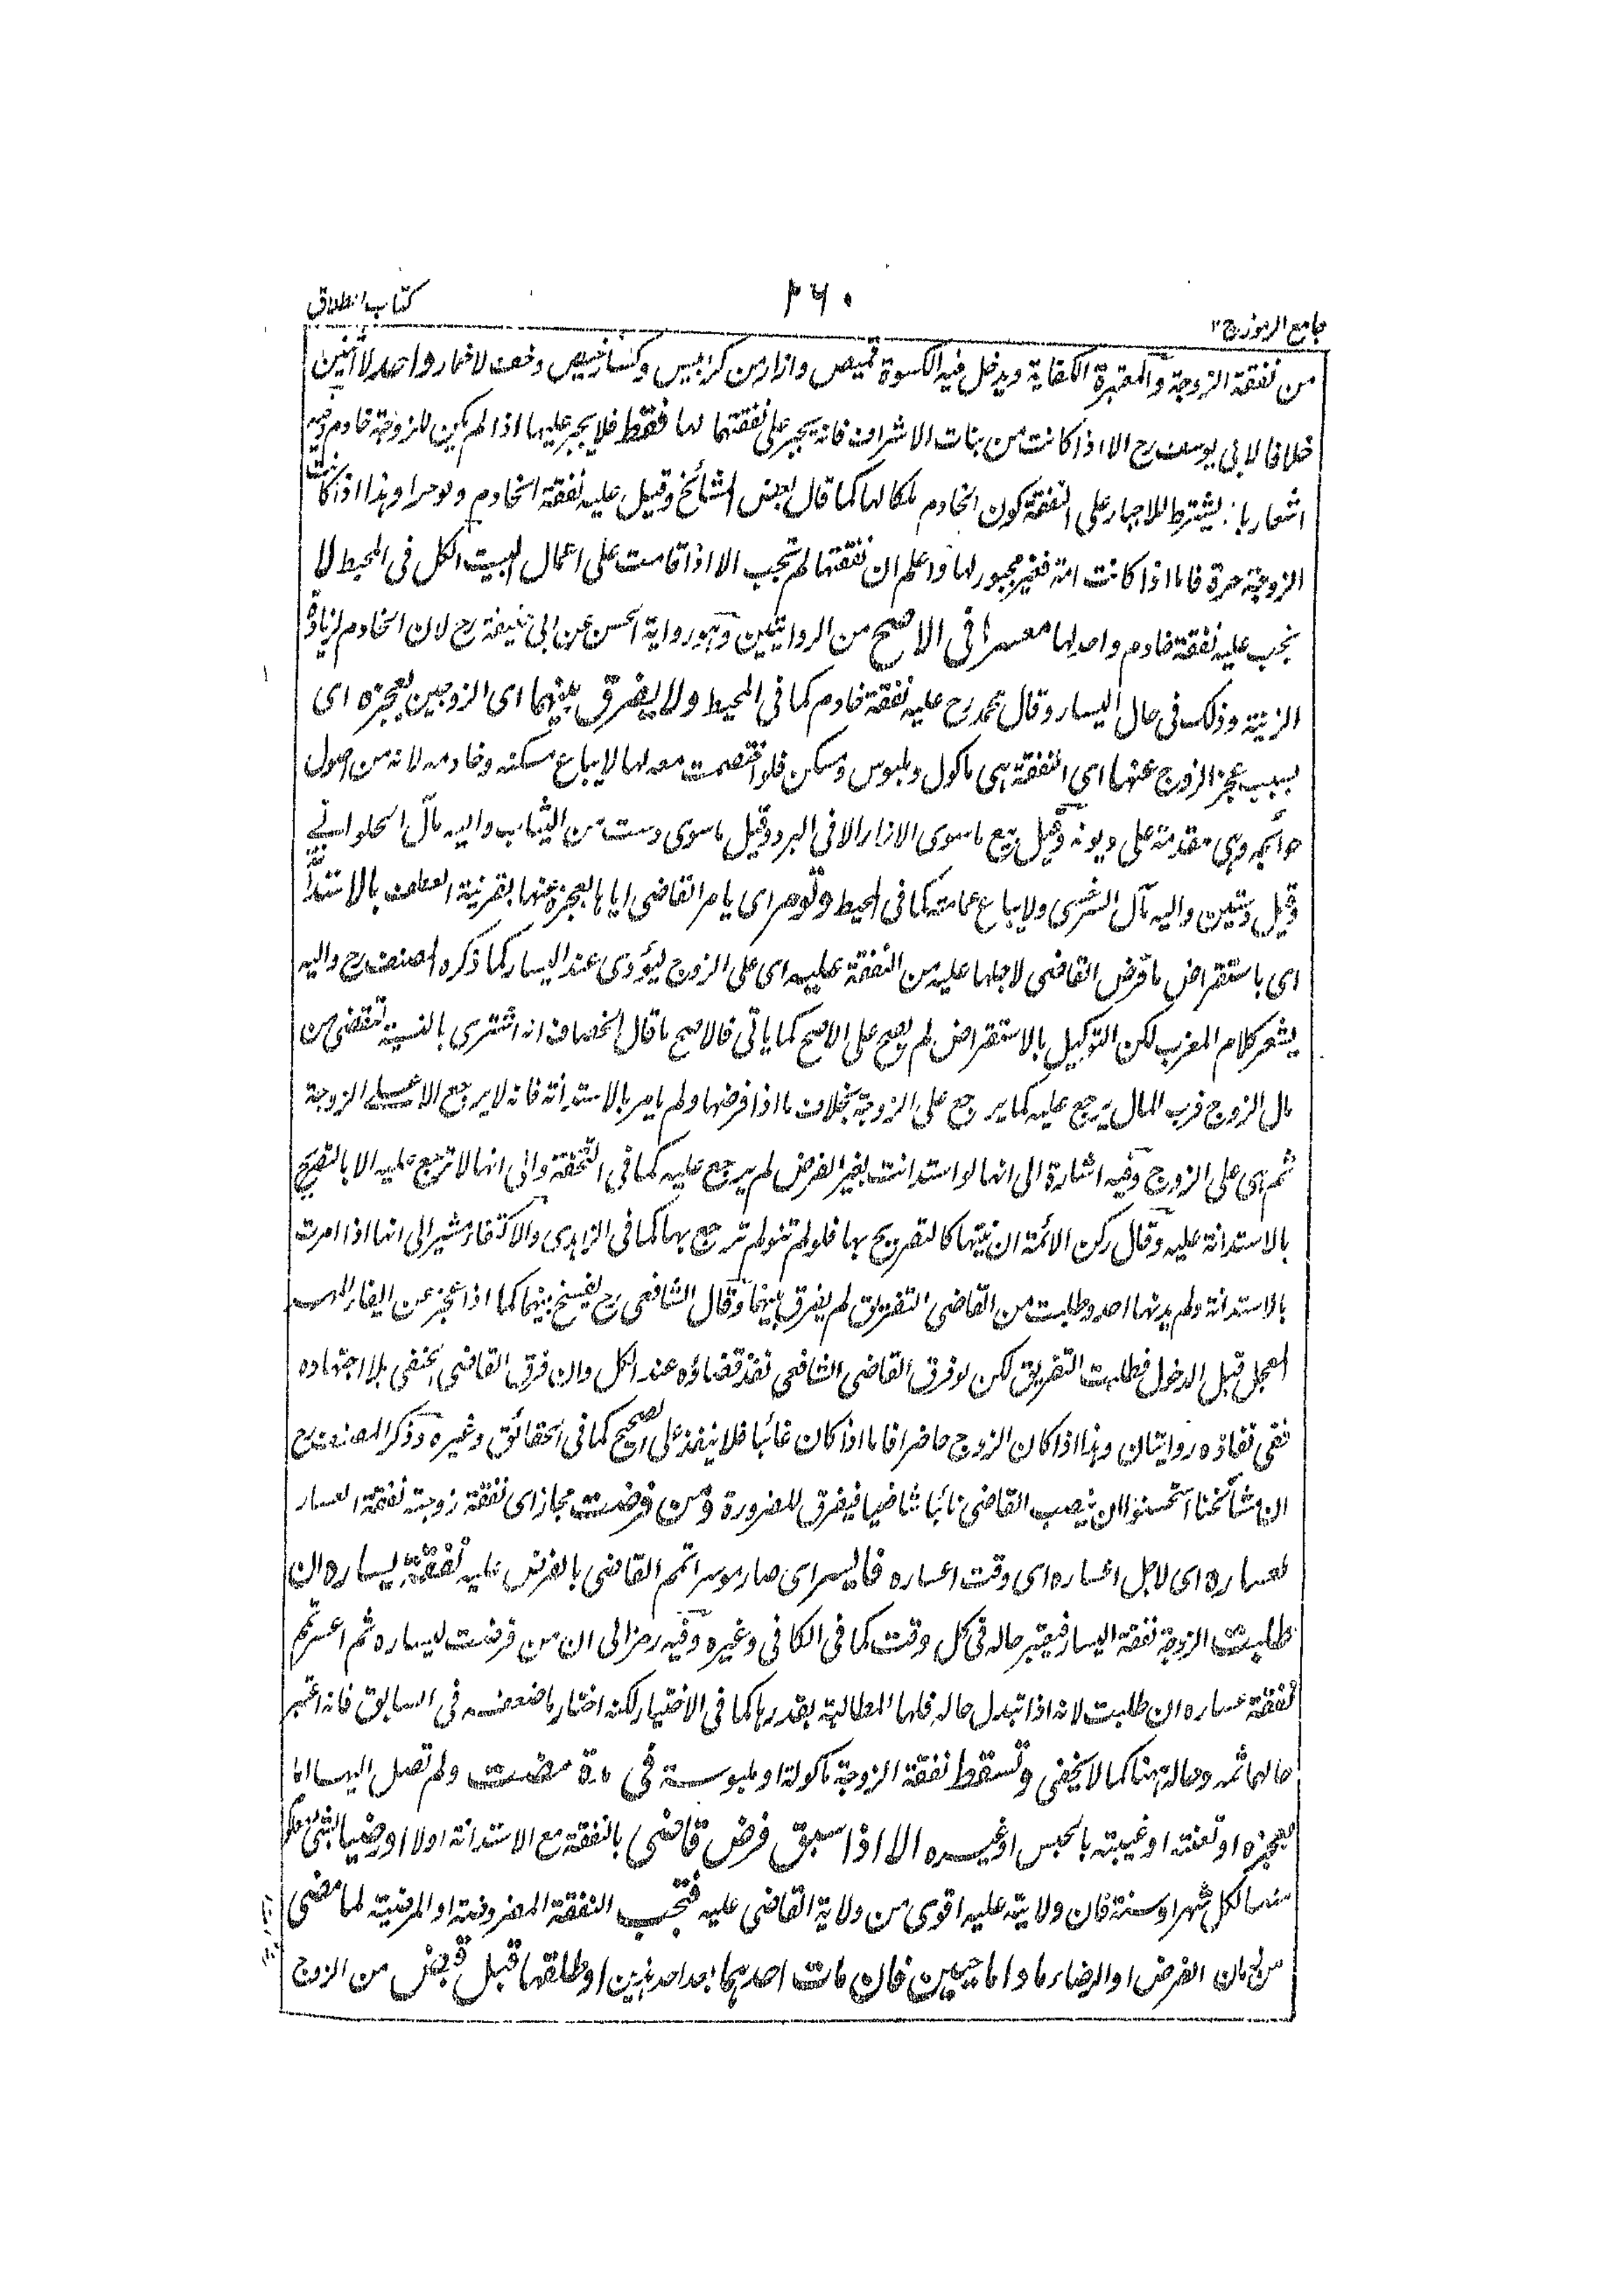 جامع الرموز ج ٢
٣٦٠
كتاب الطلاق
من نفقة الزوجة والمعتبرة الكفاية ويدخل فيه الكسوة قميص وازار من كرابيس وكساء رخيص وخف لا خمار واحد لا اثنين
خلافا لابى يوسف رح الا اذا كانت من بنات الاشراف فانه يجبر على نفقتهما لها فقط فلا يجبر عليها اذا لم يكن للزوجة خادم وفيه
اشعار بانه يشترط للاجبار على النفقة كون الخادم ملكا لها كما قال بعض المشائخ وقيل عليه نفقة الخادم ولو حرا وهذا اذا كانت
الزوجة حرة فاما اذا كانت امة فغير مجبور لها واعلم ان نفقتها لم تجب الا اذا قامت على اعمال البيت الكل فى المحيط لا
يجب عليه نفقة خادم واحد لها معسرا فى الاصح من الروايتين وهو رواية الحسن عن ابى حنيفة رح لان الخادم لزيادة
الزينة وذلك فى حال اليسار وقال محمد رح عليه نفقة خادم كما فى المحيط ولا يفرق بينهما اى الزوجين بعجزه اى
بسبب عجز الزوج عنها اى النفقة هى ماكول وملبوس ومسكن فلو اختصمت معه لها لا يباع مسكنه وخادمه لانه من اصول
حوائجه وهى مقدمة على ديونه وقيل يبيع ما سوى الازار الا فى البرد وقيل ما سوى دست من الثياب واليه مال الحلوانى
وقيل دستين واليه مال السرخسى ولا يباع عمامته كما فى المحيط وتؤمر اى يامر القاضى اياها لعجزه عنها بقرينة العطف بالاستدانة
اى باستقراض ما فرض القاضى لاجلها عليه من النفقة عليه اى على الزوج ليؤدى عند اليسار كما ذكره المصنف رح واليه
يشعر كلام المغرب لكن التوكيل بالاستقراض لم يصح على الاصح كما ياتى فالاصح ما قال الخصاف انه اشترى بالنسية لتقضى من
مال الزوج فرب المال يرجع عليه كما يرجع على الزوجة بخلاف ما اذا فرضها ولم يامر بالاستدانة فانه لا يرجع الا على الزوجة
ثم هى على الزوج وفيه اشارة الى انها لو استدانت بغير الفرض لم يرجع عليه كما فى التحفة والى انها لا ترجع عليه الا بالتصريح
بالاستدانة عليه وقال ركن الائمة ان نيتها كالتصريح بها فلو لم تنو لم ترجع بها كما فى الزاهدى والاكتفاء مشير الى انها اذا امرت
بالاستدانة ولم يدنها احد وطلبت من القاضى التفريق لم يفرق بينهما وقال الشافعى رح يفسخ بينهما كما اذا عجز عن ايفاء المهر
المعجل قبل الدخول فطلبت التفريق لكن لو فرق القاضى الشافعى نفذ قضاؤه عند الكل وان فرق القاضى الحنفى بلا اجتهاده
ففى نفاذه روايتان وهذا اذا كان الزوج حاضرا فاما اذا كان غائبا فلا ينفذ على الصحيح كما فى الحقائق وغيره وذكر المصنف رح
ان مشائخنا استحسنوا ان ينصب القاضى نائبا شافعيا فيفرق للضرورة ومن فرضت مجاز اى نفقة زوجة نفقة العسار
لعساره اى لاجل اعساره اى وقت اعساره فايسر اى صار موسرا تمم القاضى بالفرض عليه نفقة يساره ان
طلبت الزوجة نفقة اليسار فيعتبر حاله فى كل وقت كما فى الكافى وغيره وفيه رمز الى ان من فرضت ليساره ثم اعسر تمم
نفقة عساره ان طلبت لانه اذا تبدل حاله فلها المطالبة بقدرها كما فى الاختيار لكنه اختار ما ضعفه فى السابق فانه اعتبر
حالهما ثمه وحاله هنا كما لا يخفى وتسقط نفقة الزوجة ماكولة او ملبوسة فى مدة مضت ولم تصل اليها اما
لعجزه او تعنته او غيبته بالحبس او غيره الا اذا سبق فرض قاضى بالنفقة مع الاستدانة اولا او رضيا بشئ معلوم
منهما لكل شهر او سنة فان ولايته عليه اقوى من ولاية القاضى عليه فتجب النفقة المفروضة او المرضية لما مضى
من زمان الفرض او الرضاء ما داما حيين فان مات احدهما بعد احد هذين او طلقها قبل قبض من الزوج